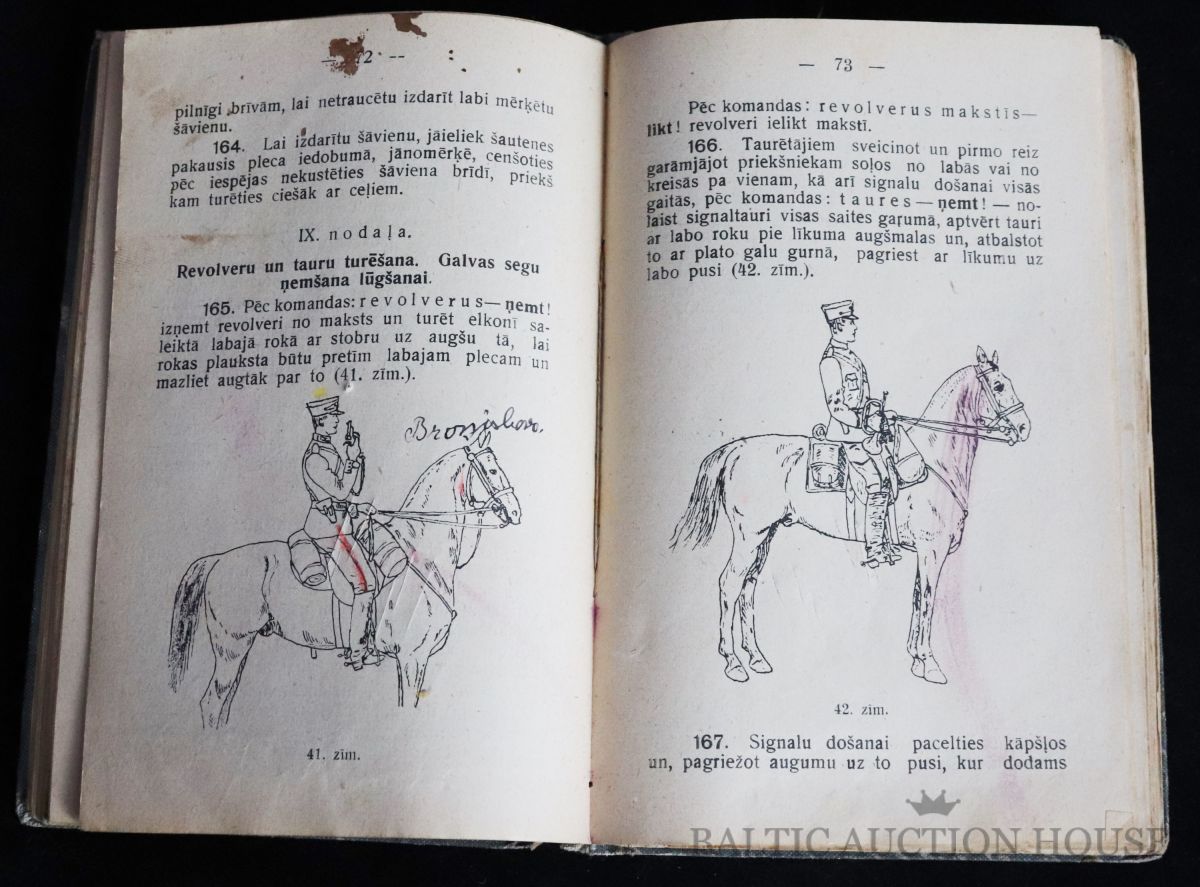 — 72 --
pilnīgi brīvām, lai netraucētu izdarīt labi mērķētu
šāvienu.
164. Lai izdarītu šāvienu, jāieliek šautenes
pakausis pleca iedobumā, jānomērķē, cenšoties
pēc iespējas nekustēties šāviena brīdī, priekš
kam turēties ciešāk ar ceļiem.
IX. nodaļa.
Revolveru un tauru turēšana. Galvas segu
ņemšana lūgšanai.
165. Pēc komandas: revolverus—ņemt!
izņemt revolveri no maksts un turēt elkonī sa-
leiktā labajā rokā ar stobru uz augšu tā, lai
rokas plauksta būtu pretīm labajam plecam un
mazliet augtāk par to (41. zīm.).
41. zīm.
— 73 —
Pēc komandas: revolverus makstīs—
likt! revolveri ielikt makstī.
166. Taurētājiem sveicinot un pirmo reiz
garāmjājot priekšniekam soļos no labās vai no
kreisās pa vienam, kā arī signalu došanai visās
gaitās, pēc komandas: taures—ņemt! — no-
laist signaltauri visas saites gaŗumā, aptvērt tauri
ar labo roku pie līkuma augšmalas un, atbalstot
to ar plato galu gurnā, pagriest ar līkumu uz
labo pusi (42. zīm.).
42. zīm.
167. Signalu došanai pacelties kāpšļos
un, pagriežot augumu uz to pusi, kur dodams
BALTIC AUCTION HOUSE